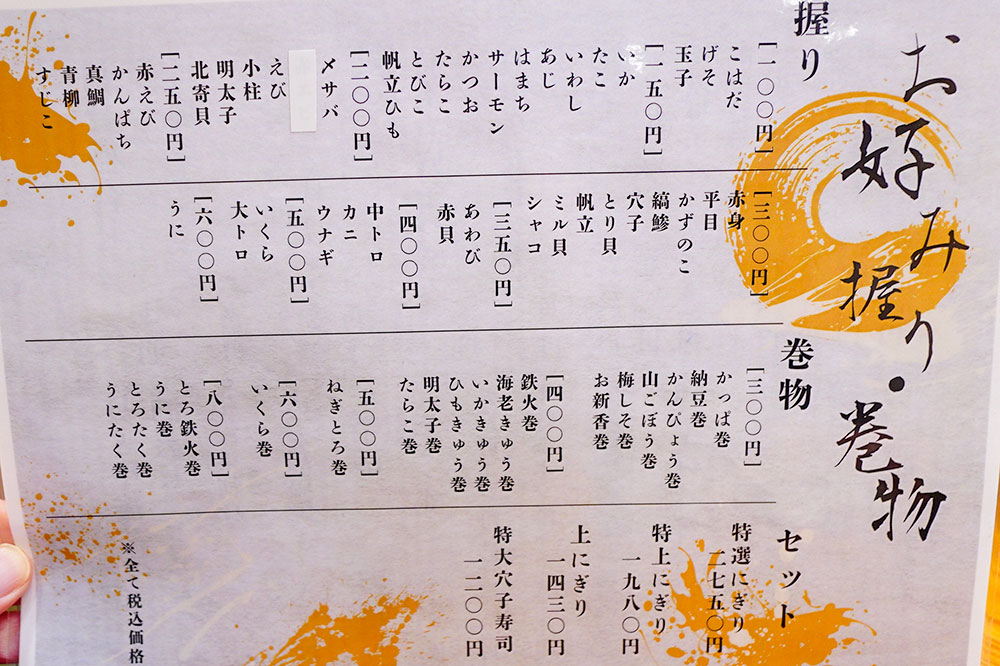 お好み握り・巻物
握り
[一〇〇円]
こはだ
げそ
玉子
[一五〇円]
いか
たこ
いわし
あじ
はまち
サーモン
かつお
たらこ
とびこ
帆立ひも
[二〇〇円]
〆サバ
えび
小柱
明太子
北寄貝
[二五〇円]
赤えび
かんぱち
真鯛
青柳
すじこ
[三〇〇円]
赤身
平目
かずのこ
縞鯵
穴子
とり貝
帆立
ミル貝
シャコ
[三五〇円]
あわび
赤貝
[四〇〇円]
中トロ
カニ
ウナギ
[五〇〇円]
いくら
大トロ
[六〇〇円]
うに
巻物
[三〇〇円]
かっぱ巻
納豆巻
かんぴょう巻
山ごぼう巻
梅しそ巻
お新香巻
[四〇〇円]
鉄火巻
海老きゅう巻
いかきゅう巻
ひもきゅう巻
明太子巻
たらこ巻
[五〇〇円]
ねぎとろ巻
[六〇〇円]
いくら巻
[八〇〇円]
とろ鉄火巻
うに巻
とろたく巻
うにたく巻
セット
特選にぎり
二七五〇円
特上にぎり
一九八〇円
上にぎり
一四三〇円
特大穴子寿司
一二〇〇円
※全て税込価格